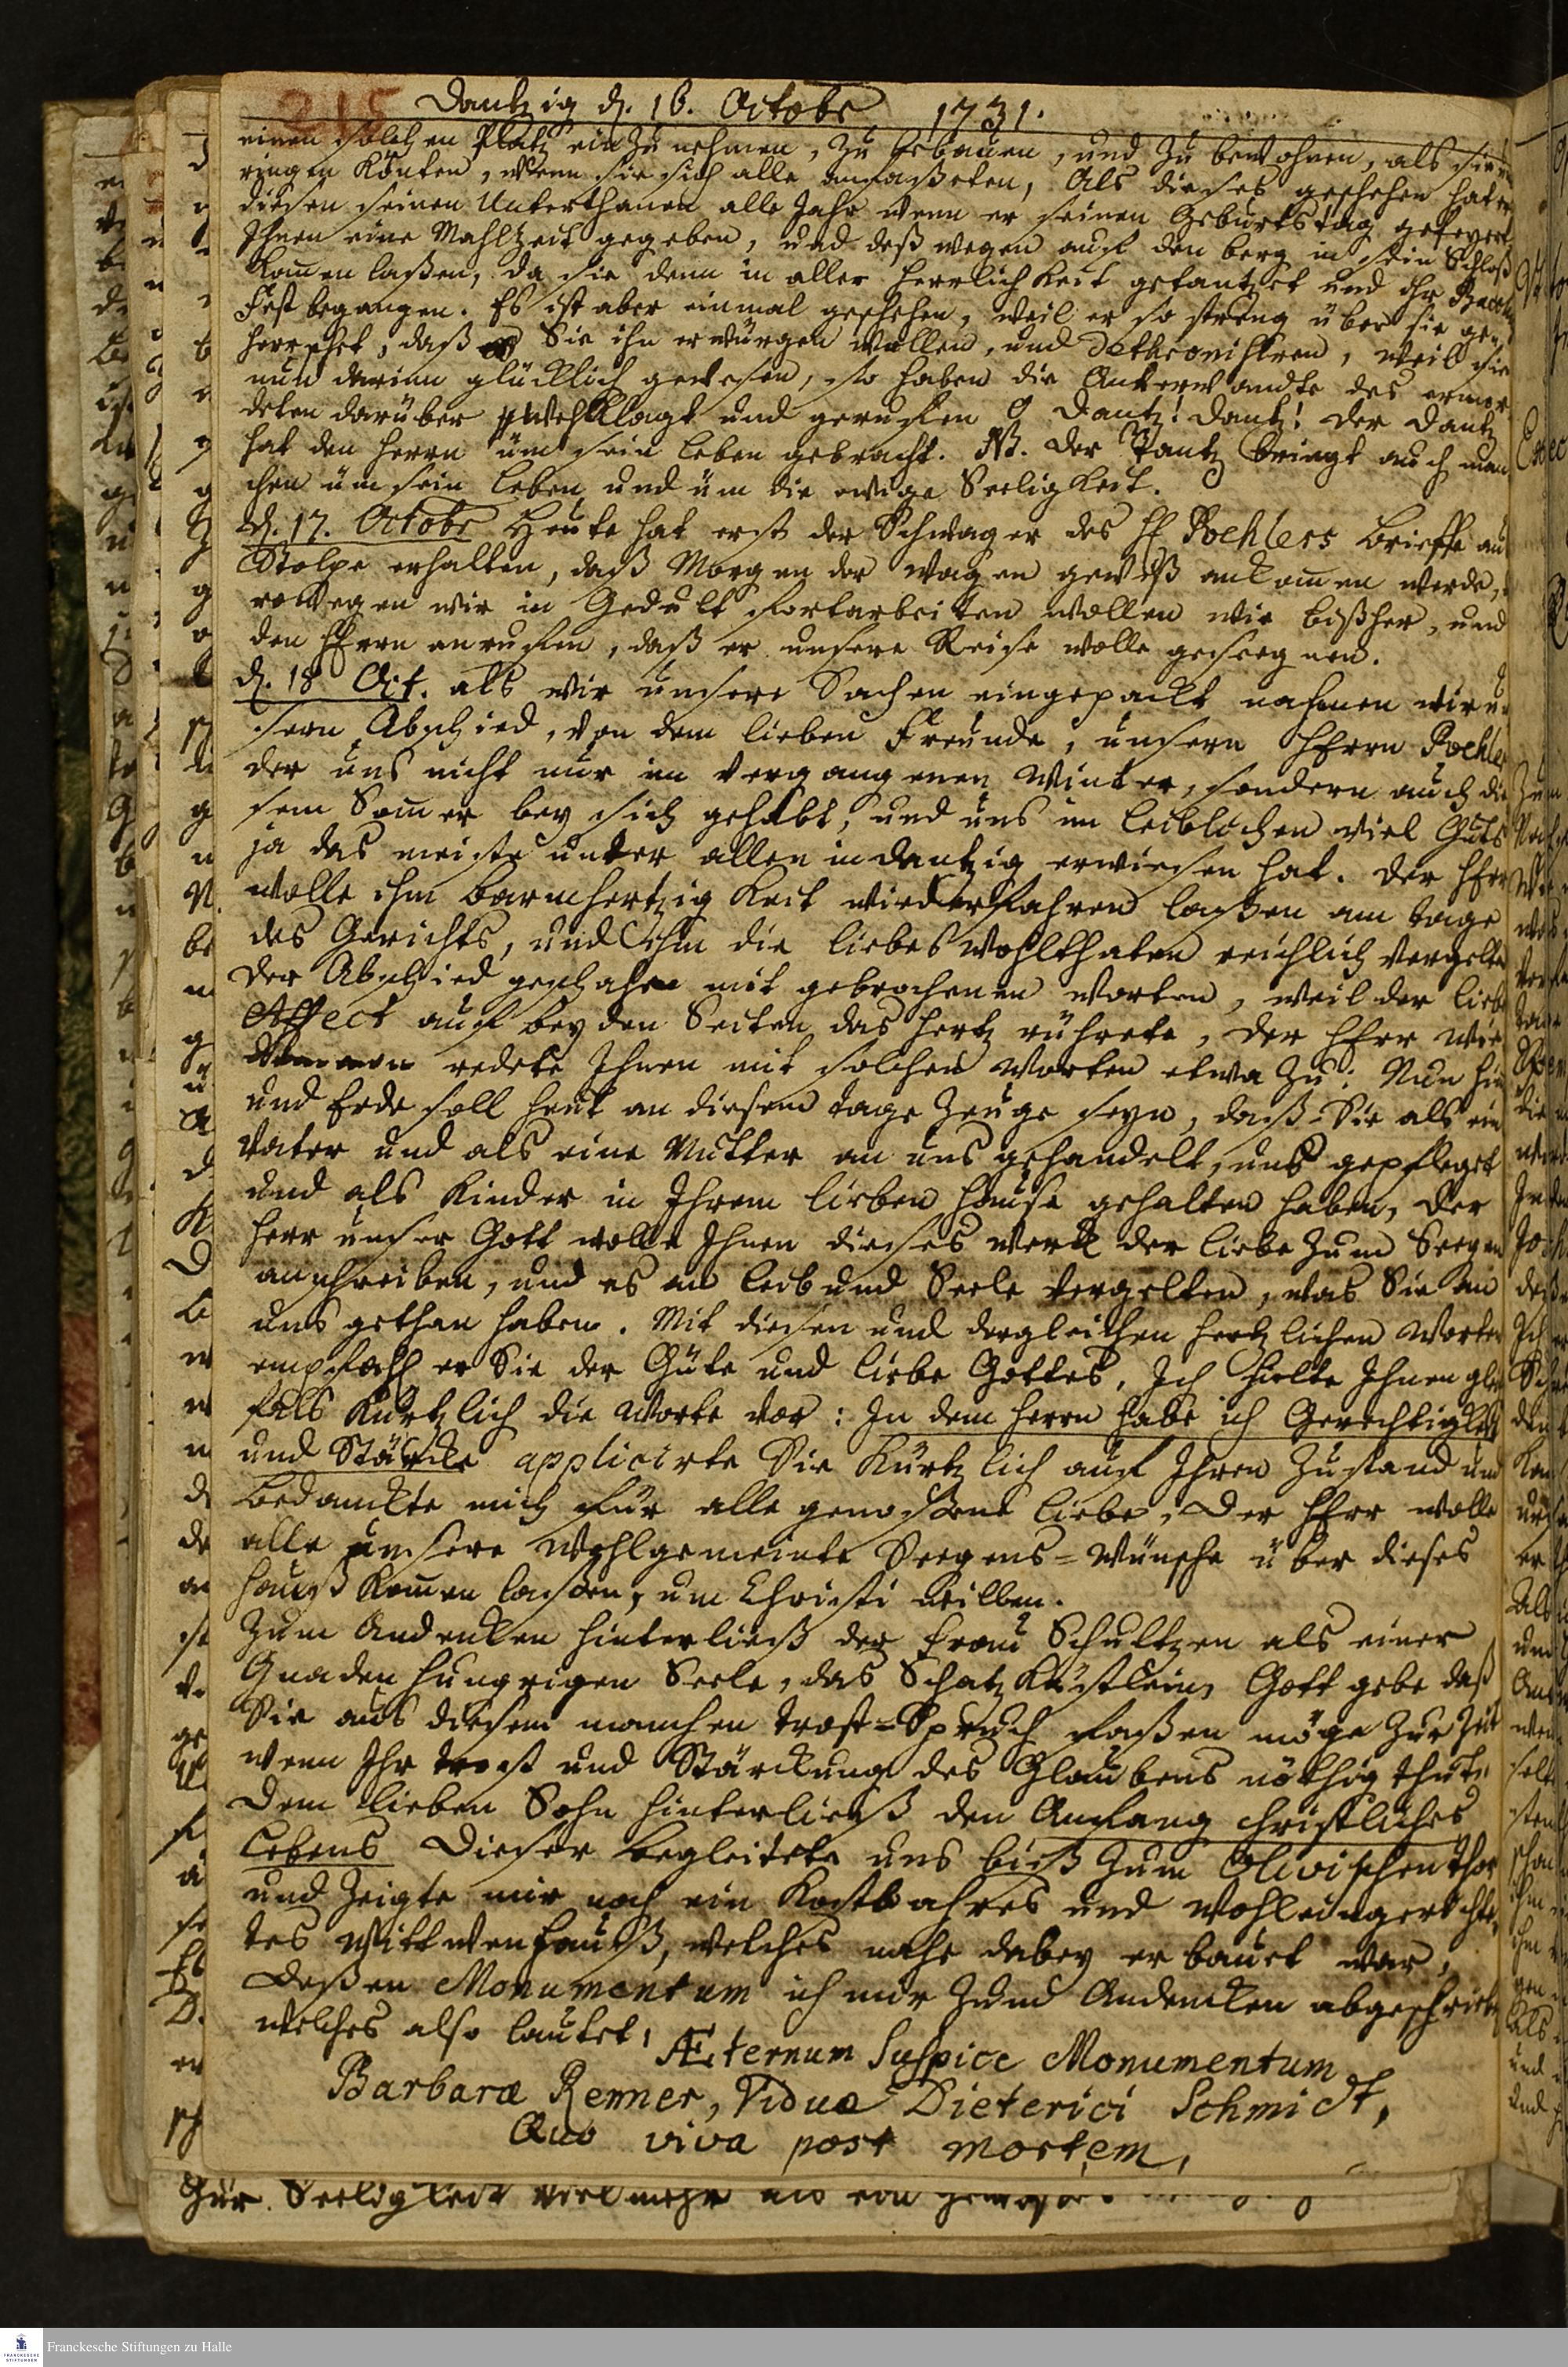 215 Dantzig d. 16. Octobr 1731.
einen solchen Platz einzunehmen, zu bebauen, und zu bewohnen, als sie
ringen könten, wenn sie sich alle anfaßeten, Als dieses geschehen hat er
diesen seinen Unterthanen alle Jahr wenn er seinen Geburtstag gefeyert
Ihnen eine Mahlzeit gegeben, und deßwegen auf den berg in sein Schloß
kom̄en laßen, da sie denn in aller Herrlichkeit getantzet und ihr
Fest begangen. Es ist aber einmal geschehen, weil er so streng über sie ge
herrschet, daß Sie ihn erwürgen wollen, und dethronisiren, weil sie
nun darinn glücklich gewesen, so haben die Anverwandte des ermor
deten darüber wehklagt und geruffen O Dantz! Dantz! der Dantz
hat den Herrn üm sein Leben gebracht. NB. Der Tantz bringt auch man
chen üm sein Leben und üm die ewige Seeligkeit.
d. 17. Octobr Heute hat erst der Schwager des H Poehlers Brieffe au
Stolpe erhalten, daß Morgen der Wagen gewiß ankom̄en werde,
rowegen wir in Gedult fortarbeiten wollen wie bißher, und
den HErrn anruffen, daß er unsere Reise wolle geseegnen.
d. 18 Oct. als wir unsere Sachen eingepackt nahmen wir un
sern Abschied, von dem lieben Freunde, unsern HErrn Poehler
der uns nicht nur im vergangenen Winter, sondern auch die
sem Som̄er bey sich gehabt, und uns im leiblichen viel Guts
ja das meiste unter allen in Dantzig erwiesen hat. Der HErr
wolle ihm Barmhertzigkeit wiederfahren laßen am tage
des Gerichts, und ihm die Liebes wohlthaten reichlich vergelten
Der Abschied geschahe mit gebrochenen Worten, weil der liebes
Affect auf beyden Seiten das Hertz rührete, der HErr
redete Ihnen mit solchen Worten etwa zu: Nun Him
und Erde soll heut an diesem tage Zeuge seyn, daß Sie als ein
Vater und als eine Mutter an uns gehandelt, uns gepfleget
und als Kinder in Ihrem lieben Hause gehalten haben, der
Herr unser Gott wolle Ihnen dieses Werck der liebe zum Seegen
anschreiben, und es an Leib und Seele vergelten, was Sie an
uns gethan haben. Mit diesen und dergleichen hertzlichen Worten
empfahl er Sie der Güte und liebe Gottes, Ich hielte Ihnen glei
fals kürtzlich die Worte vor: In dem Herrn habe ich Gerechtigkeit
und Stärcke applicirte Sie kürtzlich auf Ihren Zustand und
bedanckte mich für alle genoßene liebe, Der HErr wolle
alle unsere Wohlgemeinte Seegens=Wünsche über dieses
Hauß kom̄en laßen, um Christi willen.
Zum Andencken hinterließ der Frau Schultzen als einer
Gnaden hungrigen Seele, das Schatz Kästlein, Gott gebe daß
Sie aus diesem manchen trost=Spruch faßen möge zur Zeit
wenn Ihr trost und Stärckung des Glaubens nöthig thut.
Dem lieben Sohn hinterließ den Anfang christliches
Lebens Dieser begleitete uns biß zum Olivischen Thor
und zeigte mir noch ein Kostbahres und Wohleingerichte,
tes Wittwenhauß, welches nahe dabey erbauet war,
deßen Monumentum ich mir zum Andencken abgeschrieben
welches also lautet,
Æternum Suspice Monumentum
Barbaræ Renner, Viduæ Dieterici Schmidt,
Quo viva post mortem,
zur Seeligkeit vielmehr als
Franckesche Stiftungen zu Halle